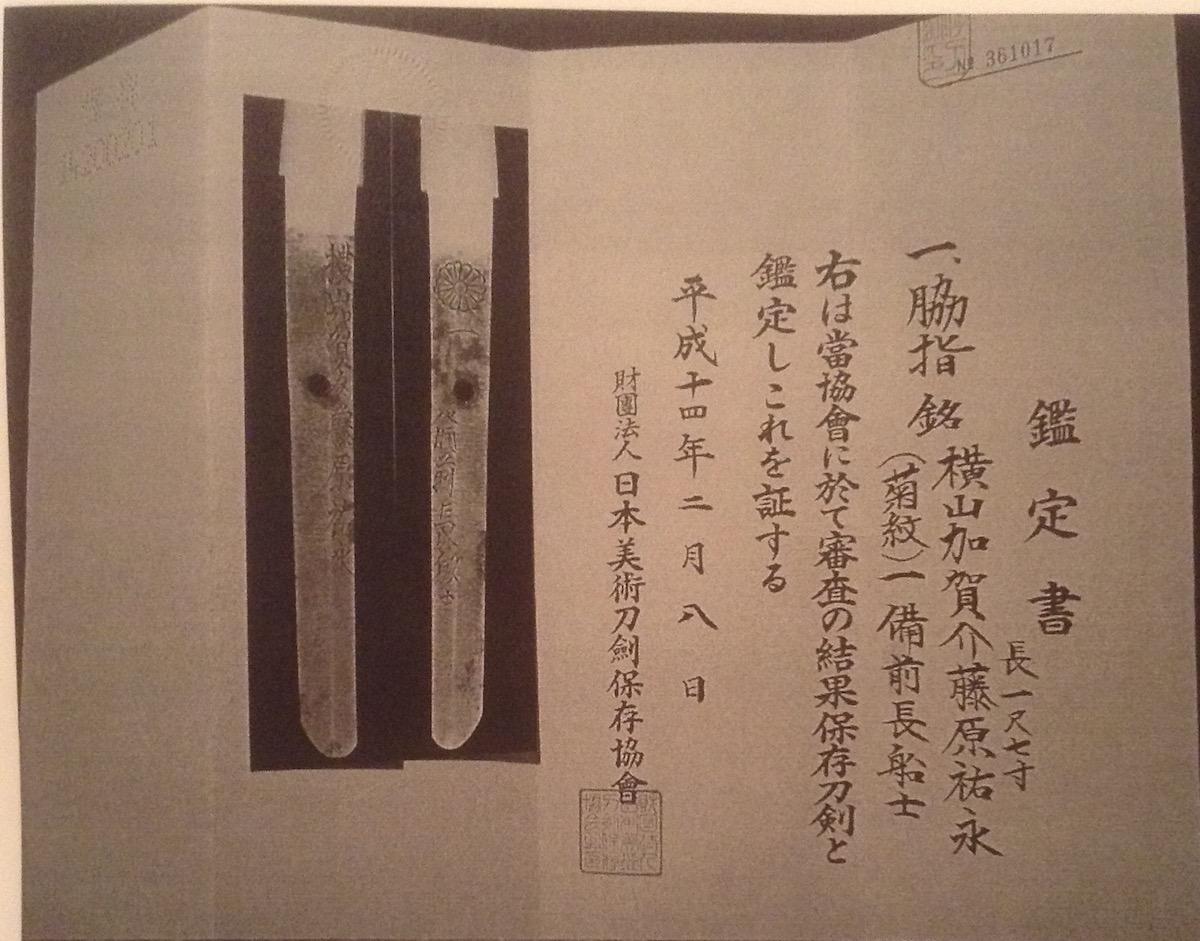 № 361017
鑑定書
長一尺七寸
一、脇指 銘 横山加賀介藤原祐永
(菊紋)一備前長船士
右は當協會に於て審査の結果保存刀剣と
鑑定しこれを証する
平成十四年二月八日
財團法人日本美術刀劍保存協會